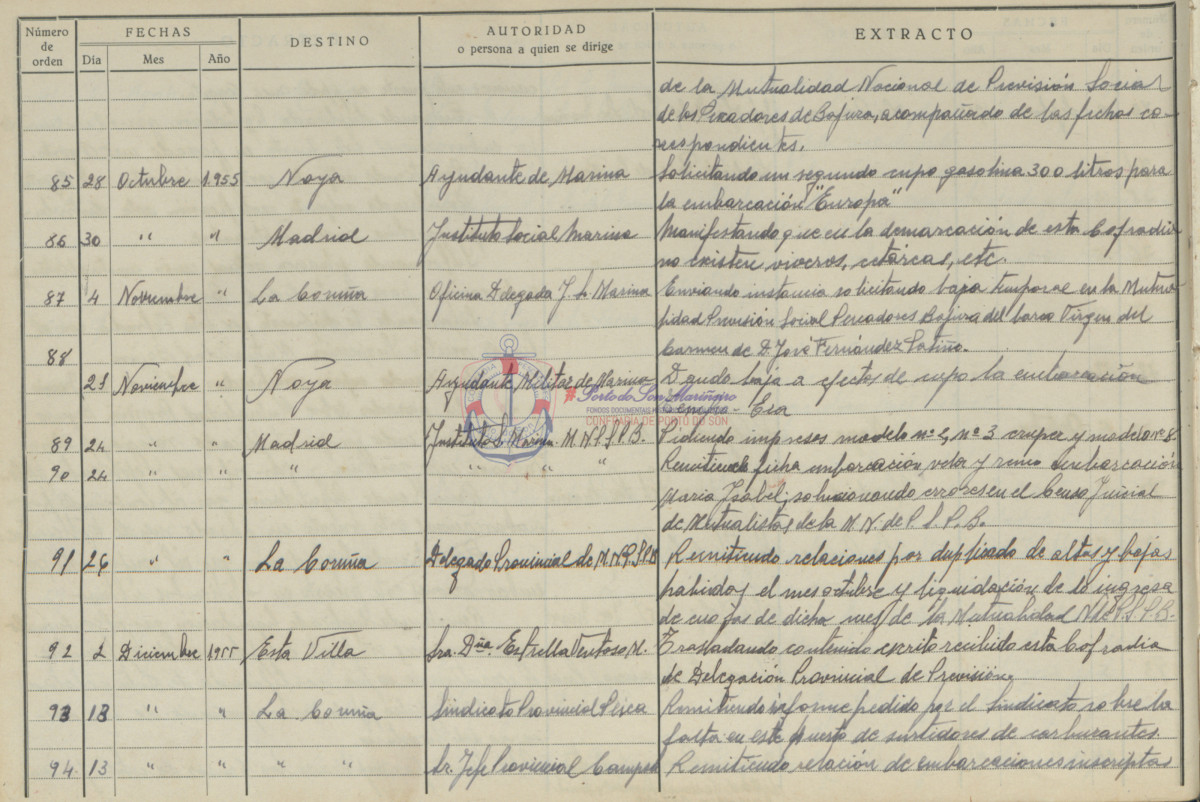 Número de orden FECHAS Día Mes Año DESTINO AUTORIDAD o persona a quien se dirige EXTRACTO
de la Mutualidad Nacional de Previsión Social
de los Pescadores de Bajura, acompañado de las fichas co-
rrespondientes.
85 28 Octubre 1.955 Noya Ayudante de Marina Solicitando un segundo cupo gasolina 300 litros para
la embarcación "Europa"
86 30 " " Madrid Instituto Social Marina Manifestando que en la demarcación de esta Cofradía
no existen viveros, cetáreas, etc.
87 4 Noviembre " La Coruña Oficina Delegada I. S. Marina Enviando instancia solicitando baja temporal en la Mutua-
lidad Previsión Social Pescadores Bajura del barco Virgen del
88 Carmen de D. José Fernández Patiño.
23 Noviembre " Noya Ayudante Militar de Marina Dando baja a efectos de cupo la embarcación
#PortodoSon Mariñeiro
FONDOS DOCUMENTAIS
CONFRARÍA DE PORTO DO SON
89 24 " " Madrid Instituto S. Marina M.N.P.S.P.B. Pidiendo impresos modelo nº 2, nº 3 y modelo nº 8.
90 24 " " " " " Remitiendo ficha embarcación vela y remo embarcación
María Isabel; solucionando errores en el Censo Inicial
de Mutualistas de la M.N. de P.S.P.B.
91 26 " " La Coruña Delegado Provincial de M.N.P.S.P.B Remitiendo relaciones por duplicado de altas y bajas
habidas el mes octubre y liquidación de lo ingresa
de cuotas de dicho mes de la Mutualidad N. de P.S.P.B.
92 2 Diciembre 1955 Esta Villa Sra. Dña. Estrella Ventoso M. Trasladando contenido escrito recibido esta Cofradía
de Delegación Provincial de Previsión
93 13 " " La Coruña Sindicato Provincial Pesca Remitiendo informe pedido por el Sindicato sobre la
falta en este puerto de surtidores de carburantes.
94 13 " " " " Sr. Jefe Provincial Campsa Remitiendo relación de embarcaciones inscriptas